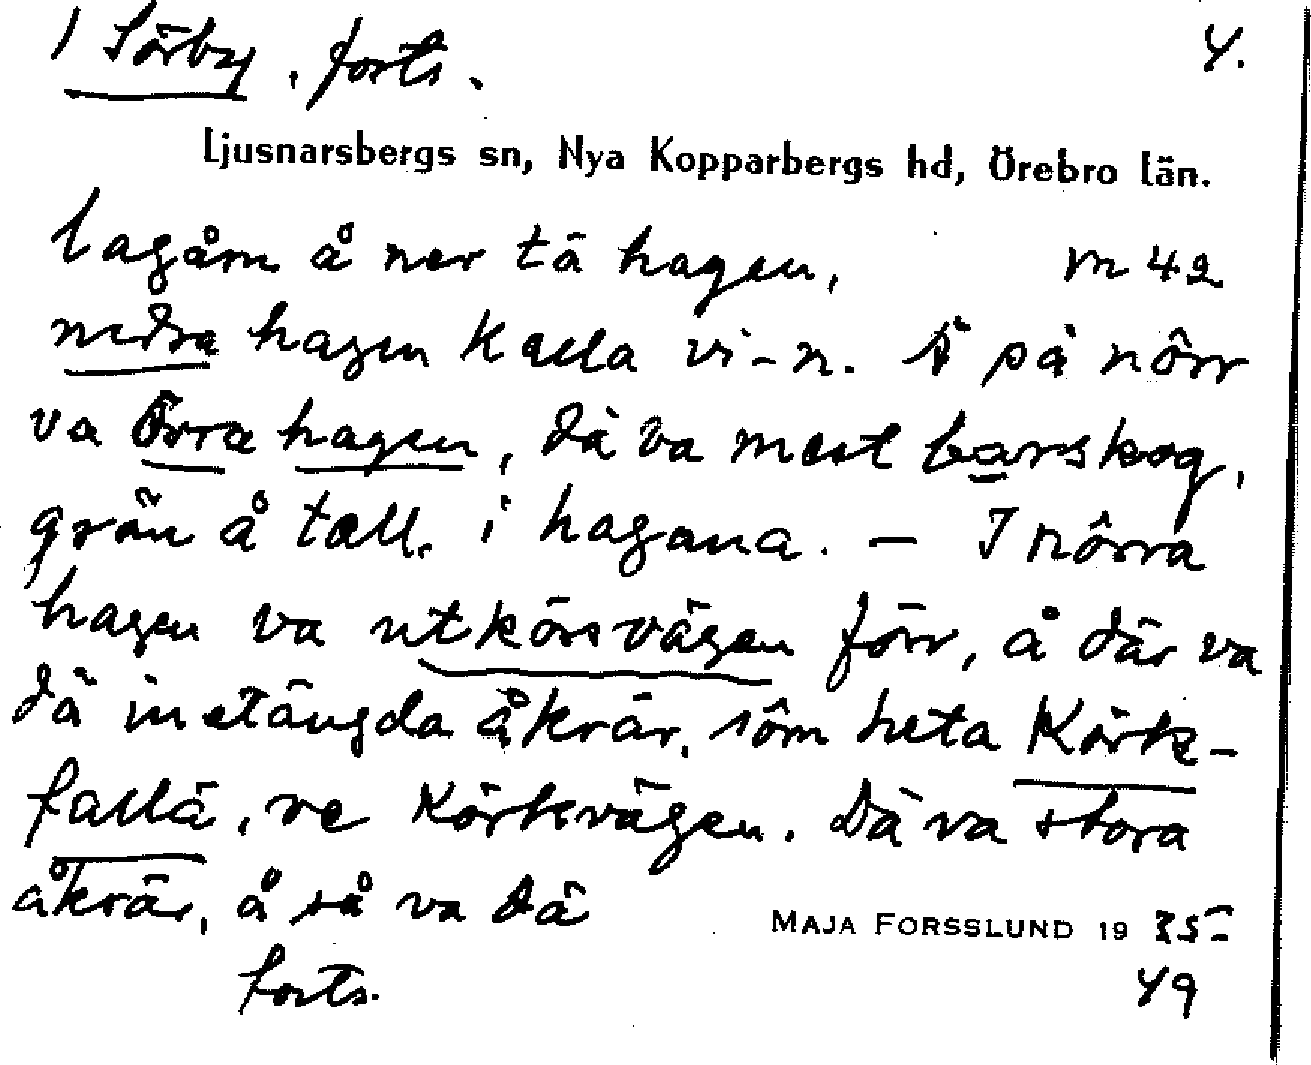 1 Sörby, forts. 4.
Ljusnarsbergs sn, Nya Kopparbergs hd, Örebro län.
lagåm å ner tä hagen, M 42
nedra hagen kalla vi-n. Å på nôrr
va Övra hagen, dä va mest barskog,
grän å tall. i hagana. – I nôrra
hagen va utkörsvägen förr, å där va
dä instängda åkrär, sôm heta Körk-
fallä, ve Körkvägen. Dä va stora
åkrär, å så va dä
MAJA FORSSLUND 1935-
forts. 49